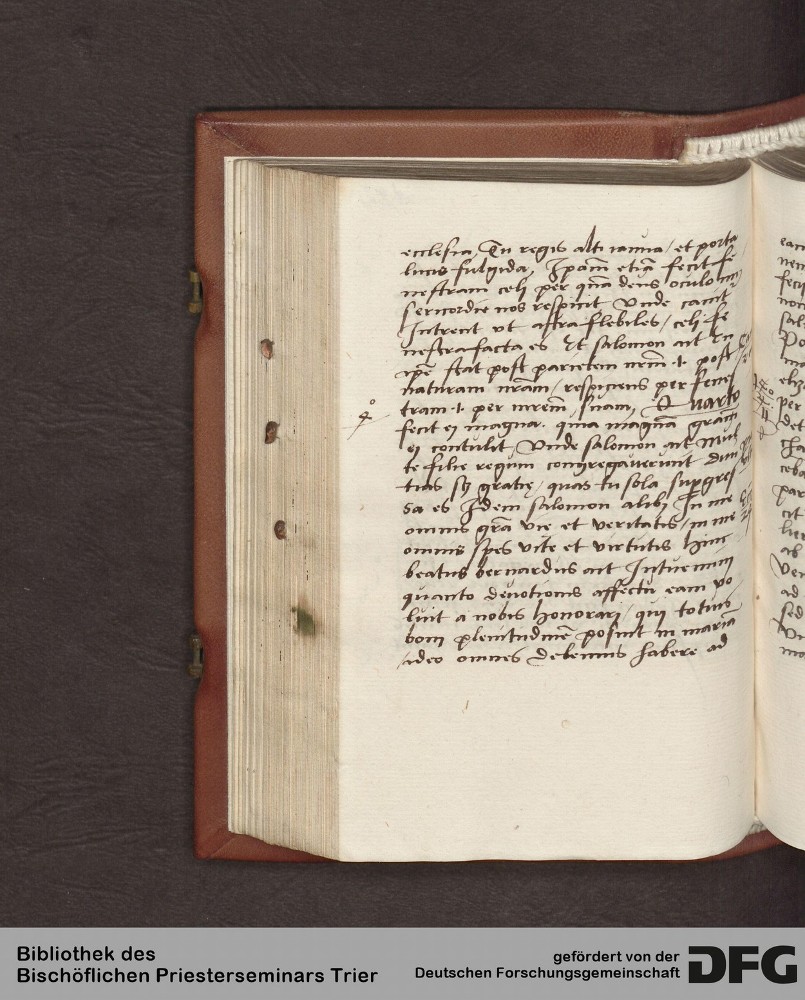 ecclesia, Tu regis alti ianua / et porta
lucis fulgida, Ipam etiā fecit fe
nestram celi per quā deus oculo mi
sericordie nos respicit Unde canit
Intrent vt astra flebiles / celi fe
nestra facta es Et salomon ait En
ipse stat post parietem nrm .i. post
naturam nrām / respiciens per fenes
tram .i. per mrem suam, Quarto
4º
fecit ei magna. quia magnā gram
ei contulit, Unde salomon ait mul
te filie regum congregauerunt diui
tias sz gratię / quas tu sola supgres
sa es Idem salomon alibi In me
omnis grā vie et veritatis / in me
omnis spes vite et virtutis hinc
beatus bernardus ait Intuemini
quanto deuotionis affectu eam vo
luit a nobis honorari / qui totius
boni plenitudinē posuit in mariā
ideo omnes debemus habere ad
Bibliothek des
Bischöflichen Priesterseminars Trier
gefördert von der
Deutschen Forschungsgemeinschaft
DFG